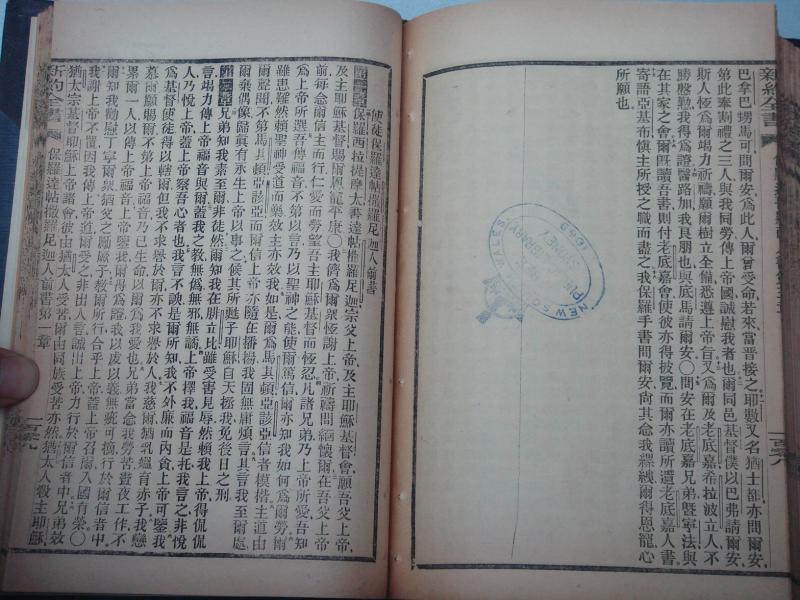 新約全書
巴拿巴甥馬可問爾安爲此人爾曾受命若來當晉接之耶數又名猶士都亦問爾安
第此奉割禮之三人與我同勞傳上帝國誠慰我者也爾同邑基督僕以巴弗請爾安
斯人恆爲爾竭力祈禱願爾樹立全備悉遵上帝旨又爲爾及老底嘉希拉波立人不
勝慇勤我得爲證醫路加我良朋也與底馬請爾安○問安在老底嘉兄弟曁寧法與
在其家之會爾旣讀吾書則付老底嘉會使彼亦得披覽而爾亦讀所遺老底嘉人書
寄語亞基布愼主所授之職而盡之我保羅手書問爾安尙其念我縲絏爾得恩寵心
所願也
NEW SOUTH WALES
PUBLIC LIBRARY
SYDNEY
使徒保羅達帖撒羅尼迦人前書
保羅西拉提摩太書達帖撒羅尼迦宗父上帝及主耶穌基督會願吾父上帝
及主耶穌基督賜爾恩寵平康○我儕爲爾衆恆謝上帝祈禱間緬懷爾在吾父上帝
前每念爾信主而行仁愛而勞望吾主耶穌基督而恆忍凡諸兄弟乃上帝所愛吾知
爲上帝所選吾傳福音不第以言乃以聖神之能使爾篤信爾亦知我如何爲爾勞爾
雖患難然賴聖神受道而樂效主亦效我如是爾爲馬其頓亞該亞信者模楷主道由
爾聲聞不第馬其頓亞該亞而爾信上帝亦隨在播揚我固無庸煩言其言我至爾處
爾棄偶像歸眞有永生上帝以事之俟其所甦子耶穌自天拯我免後日之刑
兄弟知我素至爾非徒然爾知我在腓立比雖受害見辱然賴我上帝得侃侃
言竭力傳上帝福音與爾蓋我之敎無僞無邪無譎上帝擇我福音是托我言之非悅
人乃悅上帝蓋上帝察吾心者也我言不諛是爾所知我不外廉而內貪上帝可鑒我
爲基督使徒得以轄爾但我不求譽於爾亦不求譽於人我慈爾猶乳媼育赤子我戀
慕爾願賜爾不第上帝福音乃已生命以爾爲我愛也兄弟當念我勞苦晝夜工作不
累爾一人以傳上帝福音上帝鑒我爾得爲證我以虔以義無疵可摘行於爾信者中
爾知我勸慰丁寧爾衆猶父之勵厥子敎爾所行合乎上帝蓋上帝召爾入國有榮○
我謝上帝不置因我傳上帝道爾受之非出人言誠出上帝力行於爾信者中兄弟效
猶太宗基督耶穌上帝諸會彼由猶太人受苦爾由同族受苦亦然猶太人殺主耶穌
新約全書
保羅達帖撒羅尼迦人前書第一章
一百零九